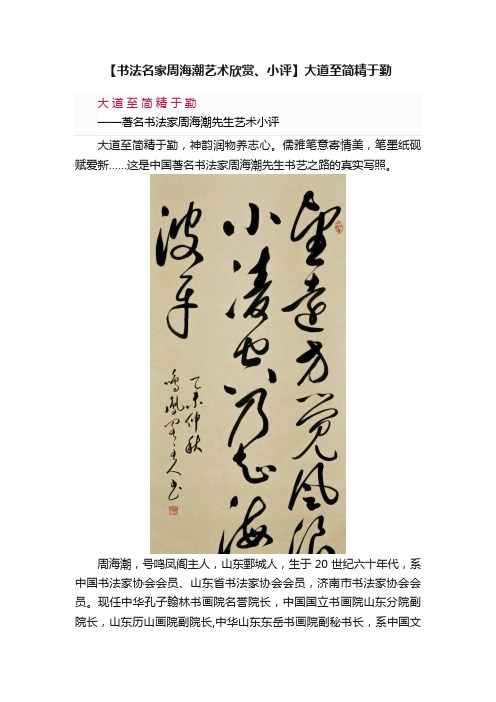 【书法名家周海潮艺术欣赏、小评】大道至简精于勤
大道至简精于勤
——著名书法家周海潮先生艺术小评
大道至简精于勤，神韵润物养志心。儒雅笔意寄情美，笔墨纸砚
赋爱新......这是中国著名书法家周海潮先生书艺之路的真实写照。
望遠方覺風浪
小凌空乃知海
波平
乙未仲秋
鳴鳳閣主人书
周海潮，号鸣凤阁主人，山东鄄城人，生于 20 世纪六十年代，系
中国书法家协会会员、山东省书法家协会会员，济南市书法家协会会
员。现任中华孔子翰林书画院名誉院长，中国国立书画院山东分院副
院长，山东历山画院副院长,中华山东东岳书画院副秘书长，系中国文